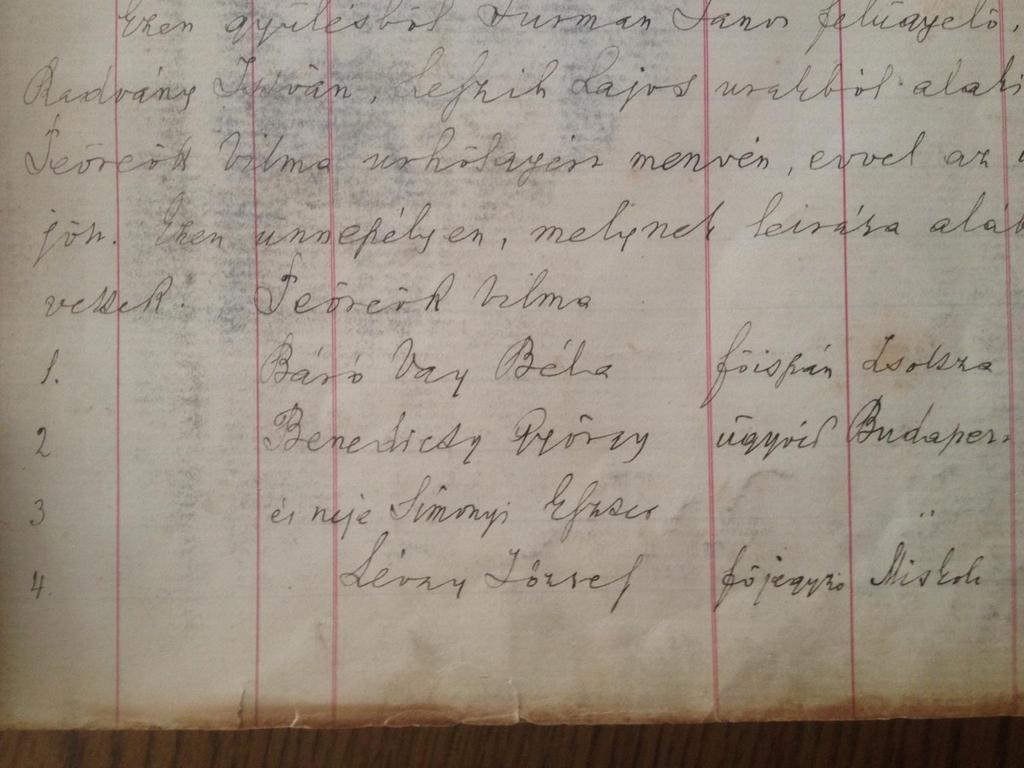 Ezen gyülésből Furman János felügyelő,
Radvány István, Lefkih Lajos urakból alaki
Teöreök Vilma urhölgyért menvén, evvel az
jön. Ezen ünnepélyen, melynek leirása aláb
vettek Teöreök Vilma
1. Báró Vay Béla főispán Zsolcza
2 Benediczty György ügyvéd Budapes
3 és neje Simonyi "
4. Lévay József főjegyző Miskolc